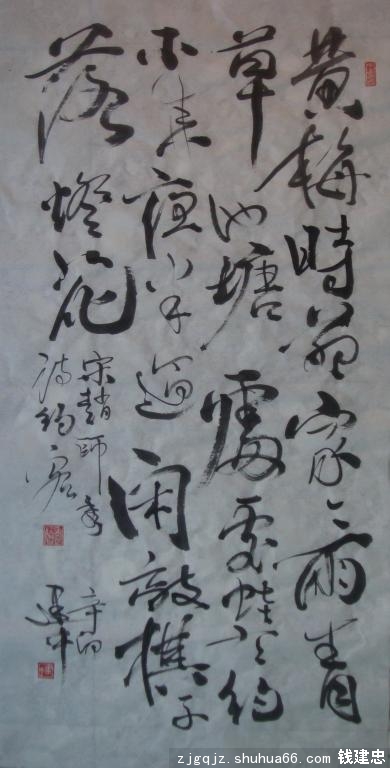 黄梅時節家〻雨青
草池塘處處蛙有约
不来夜半過闲敲棋子
落燈花
宋趙師秀
诗约客
辛卯
zjgqjz.shuhua66.com 钱建忠